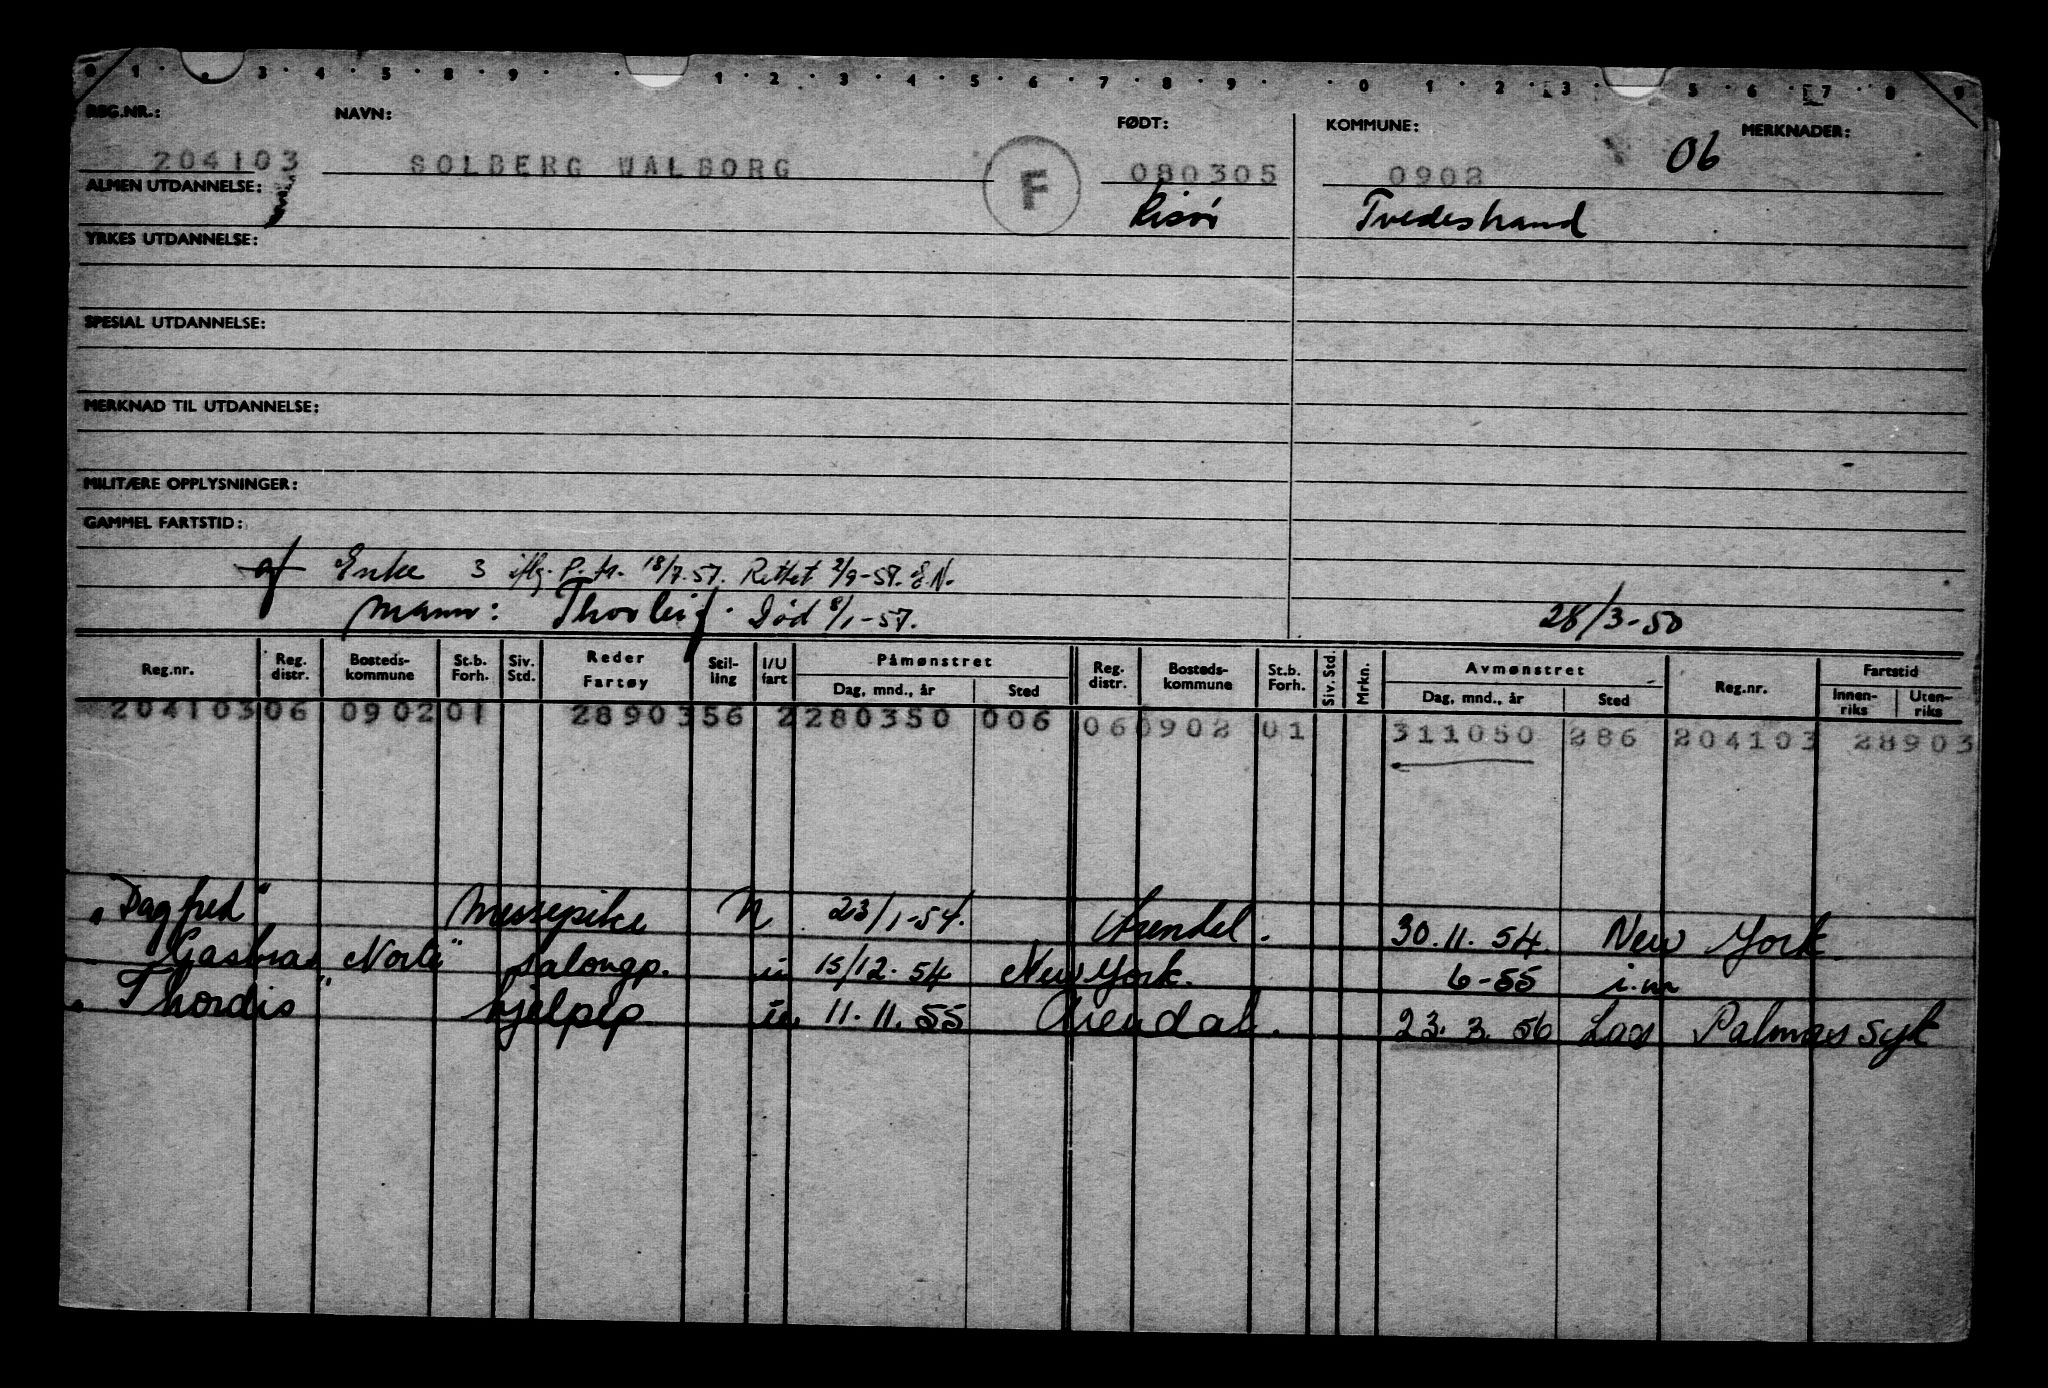 0 1 . . 3 . 4 . 5 . 8 . 9 . 1 . 2 . 3 . 4 . 5 . 6 . 7 . 8 . 9 . . 0 . 1 . 2 . 3 . 5 . 6 . 7 . 8 . 9
REG.NR.: NAVN: FØDT: KOMMUNE: MERKNADER:
204103 SOLBERG WALBORG F 080305 0902 06
ALMEN UTDANNELSE: Risør Tvedestrand
YRKES UTDANNELSE:
SPESIAL UTDANNELSE:
MERKNAD TIL UTDANNELSE:
MILITÆRE OPPLYSNINGER:
GAMMEL FARTSTID:
Enke 3 iflg. P. kr. 18/7.57. Rettet 2/9-57. E.N.
Mann: Thorleif. Død 8/1-57. 28/3-50
Reg.nr. Reg. distr. Bosteds-kommune St.b. Forh. Siv. Std. Reder Fartøy Stil-ling I/U fart Påmønstret Reg. distr. Bosteds-kommune St.b. Forh. Siv. Std. Mrkn. Avmønstret Reg.nr. Fartstid
Dag, mnd., år Sted Dag, mnd., år Sted Innen-riks Uten-riks
204103 06 0902 01 28903 56 2 280350 006 06 0902 01 311050 286 204103 28903
"Dagfred" Messepike N 23/1-54. Arendal. 30.11.54. New York
Gasbras Norte" Salongp. in 15/12.54 New York. 6-55
"Thordis" hjelpep in 11.11.55 Arendal. 23.3.56 Las Palmas syk